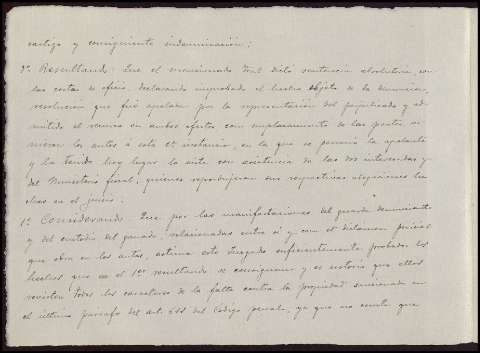 castigo y consiguiente indemnización:
3º Resultando: Que el mencionado Tral dictó sentencia absolutoria con
las costas de oficio, declarando improbado el hecho objeto de la denuncia,
resolución que fué apelada por la representación del perjudicado y ad-
mitido el recurso en ambos efectos, con emplazamiento de las partes vi-
nieron los autos á esta 2ª instancia, en la que se personó la apelante
y ha tenido hoy lugar la vista con asistencia de las dos interesadas y
del Ministerio fiscal, quienes reprodujeron sus respectivas alegaciones he-
chas en el juicio:
1º Considerando: Que por las manifestaciones del guarda denunciante
y del custodio del ganado, relacionadas entre sí y con el dictamen pericial
que obra en los autos, estima este Juzgado suficientemente probados los
hechos que en el 1er resultando se consignan y es notorio que ellos
revisten todos los caracteres de la falta contra la propiedad sancionada en
el último párrafo del art. 611 del Código penal, ya que no consta que